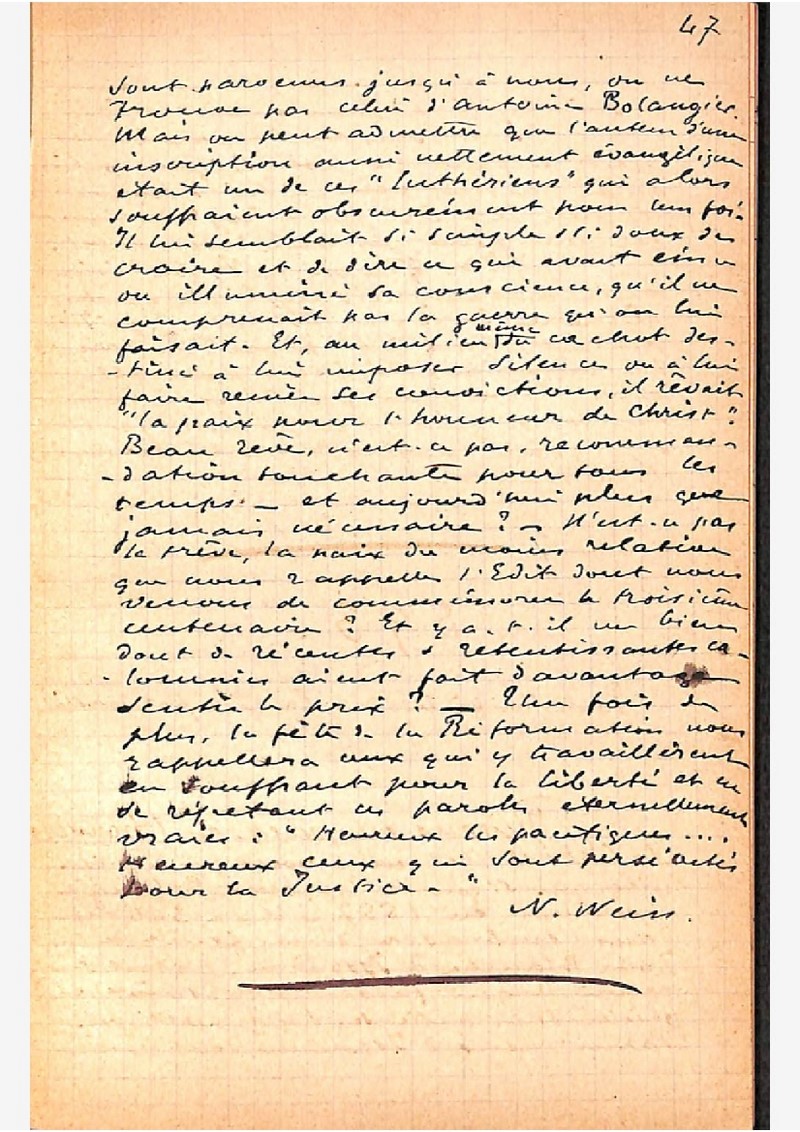 47
sont parvenus jusqu'à nous, on ne
trouve pas celui d'Antoine Bolangier.
Mais on peut admettre que l'auteur d'une
inscription aussi nettement évangélique
était un de ces "luthériens" qui alors
souffraient obscurément pour leur foi.
Il lui semblait si simple si doux de
croire et de dire ce qui avait
ou illuminé sa conscience, qu'il ne
comprenait pas la guerre qu'on lui
faisait. Et, au milieu même du cachot des-
-tiné à lui imposer silence ou à lui
faire renier ses convictions, il rêvait
"la paix pour l'honneur de Christ".
Beau rêve, n'est-ce pas, recomman-
-dation touchante pour tous les
temps - et aujourd'hui plus que
jamais nécessaire ? - N'est-ce pas
la trêve, la paix du moins relative
que nous rappelle l'Edit dont nous
venons de commémorer le troisième
centenaire ? Et y a-t-il un bien
dont de récentes & retentissantes ca-
-lomnies aient fait davantage
sentir le prix ? - Une fois de
plus, la fête de la Réformation nous
rappellera ceux qui y travaillèrent
en souffrant pour la liberté et en
se répétant ces paroles éternellement
vraies : "Heureux les pacifiques ....
Heureux ceux qui sont persécutés
pour la Justice - "
N. Weiss.